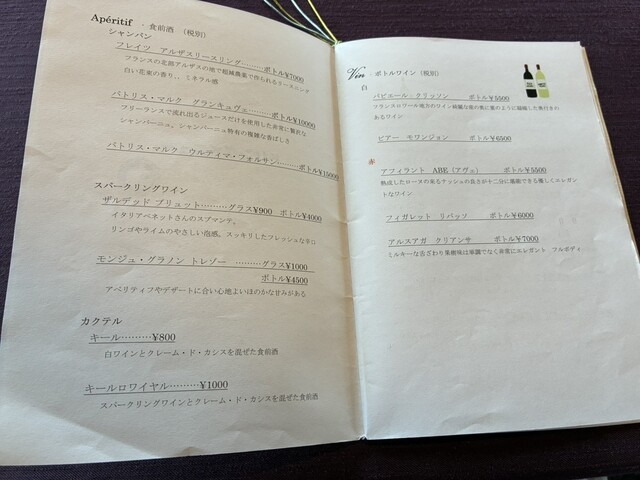 Apéritif ・食前酒 （税別）
シャンパン
フレイツ アルザスリースリング………ボトル¥7000
フランスの北部アルザスの地で
白い花束の香り、、ミネラル感
パトリス・マルク グランキュヴェ………ボトル¥10000
フリーランスで流れ出るジュースだけを使用した非常に贅沢な
シャンパーニュ。シャンパーニュ特有の複雑な香ばしさ
パトリス・マルク ウルティマ・フォルサン………ボトル¥15000
スパークリングワイン
ザルデッド ブリュット………グラス¥900 ボトル¥4000
イタリアベネットさんのスプマンテ。
リンゴやライムのやさしい泡感。スッキリしたフレッシュな辛口
モンジュ・グラノン トレゾー ………グラス¥1000
ボトル¥4500
アペリティフやデザートに合い心地よいほのかな甘みがある
カクテル
キール………¥800
白ワインとクレーム・ド・カシスを混ぜた食前酒
キールロワイヤル………¥1000
スパークリングワインとクレーム・ド・カシスを混ぜた食前酒
Vin ・ボトルワイン（税別）
白
パピエール・クリッソン ボトル¥5500
フランスロワール地方のワイン
あるワイン
ピアー モワンジョン ボトル¥6500
赤
アフィラント ABE（アヴェ） ボトル¥5500
熟成したローヌの
なワイン
フィガレット リパッソ ボトル¥6000
アルスアガ クリアンサ ボトル¥7000
ミルキーな舌ざわり果樹味は華麗でなく非常にエレガント フルボディ